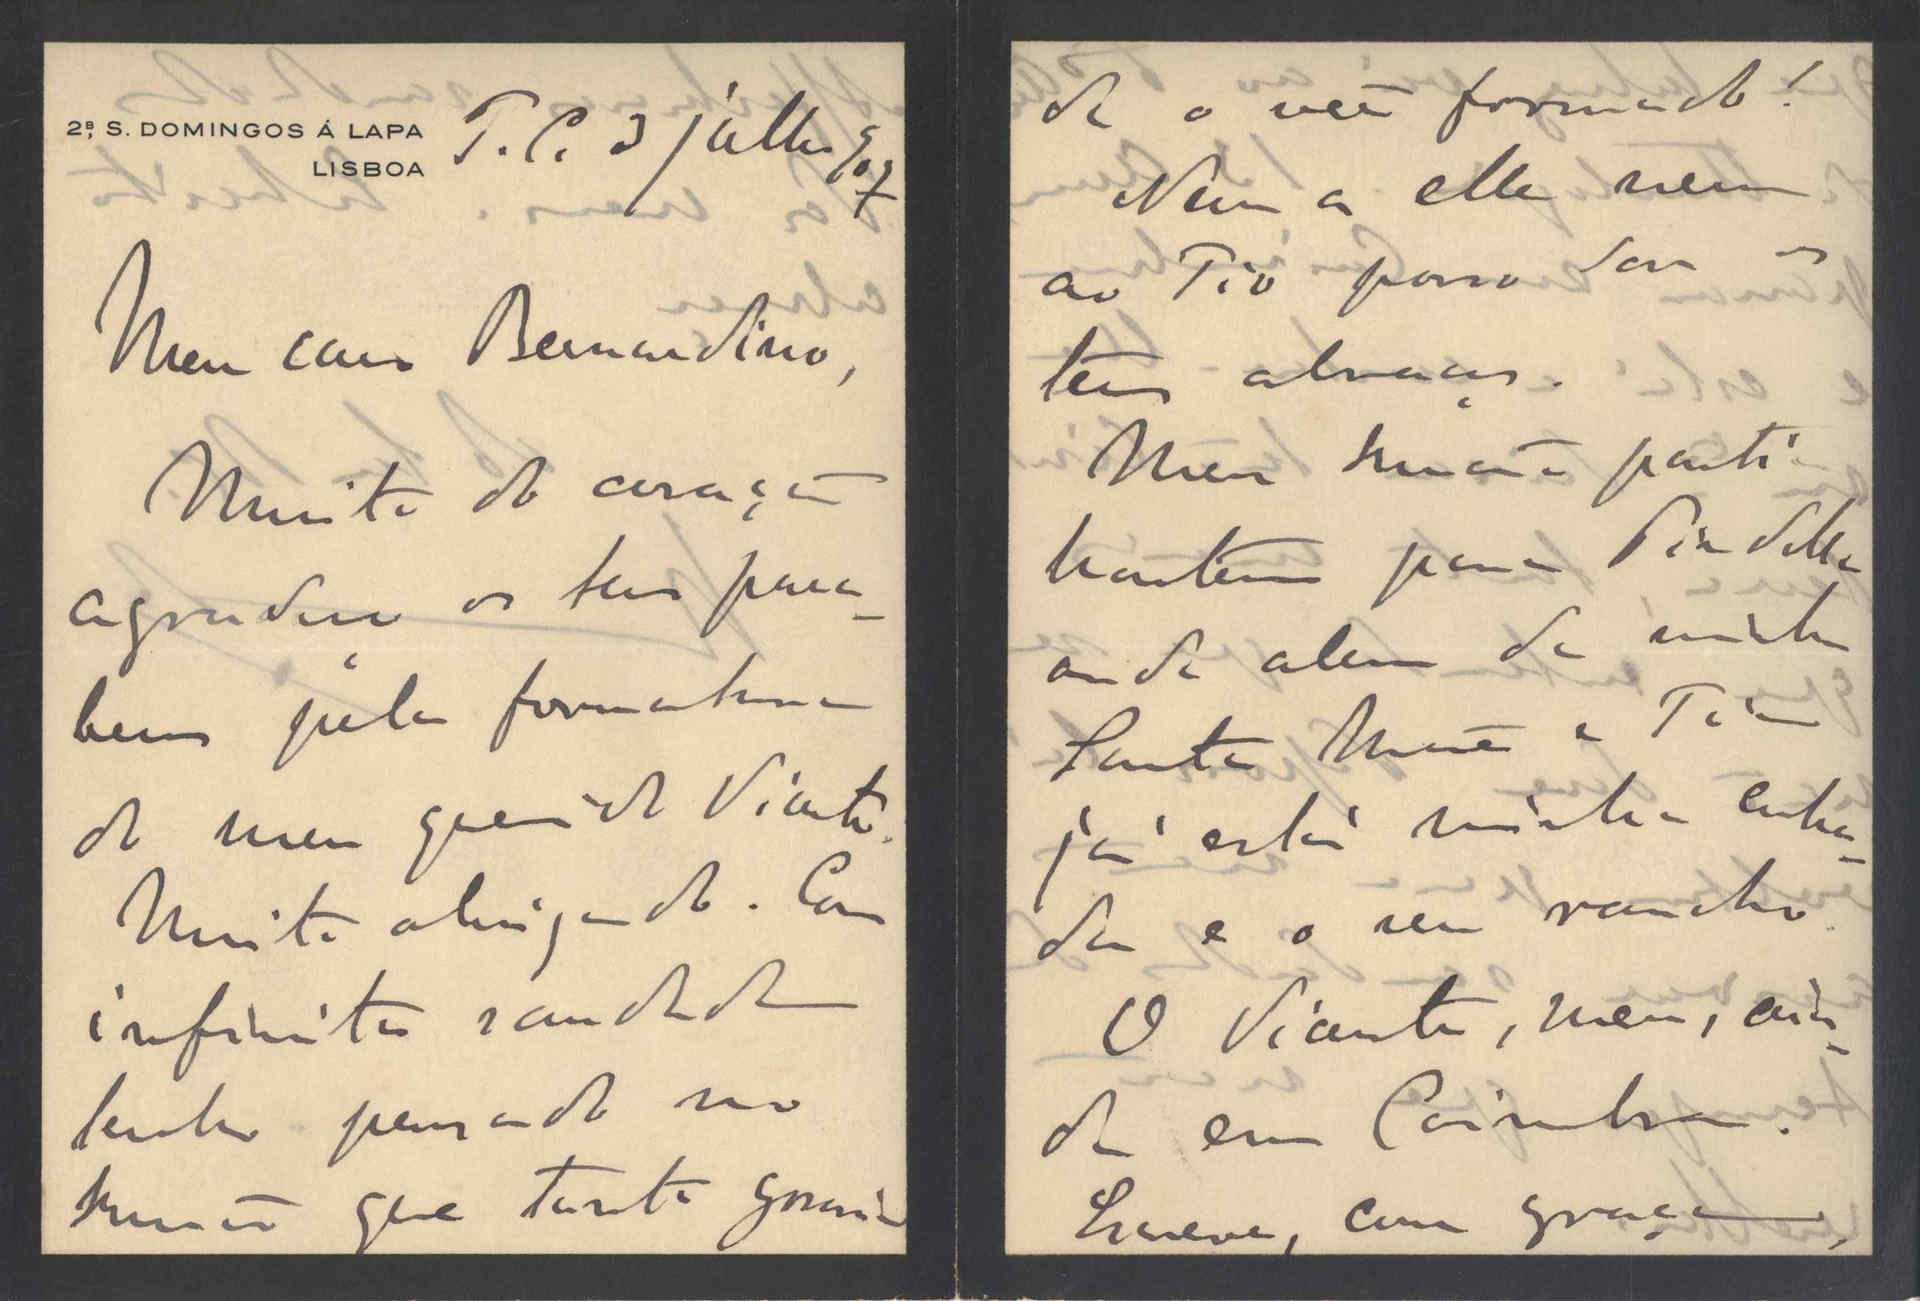 2ᴮ, S. DOMINGOS Á LAPA
LISBOA
T. C. 3 julho 907
Meu caro Bernardino,
Muito do coração
agradeço os teus para-
bens pela formatura
do meu querido Vicente.
Muito obrigado. Com
infinita saudade
tenho pensado no
Irmão que tanto gosaria
de o ver formado!
Nem a elle nem
ao Tio posso dar os
teus abraços.
Meu Irmão partiu
hontem para Pindella
onde alem de minha
Santa Mãe e Tia
já está minha cunha-
da e o seu rancho.
O Vicente, meu, ain-
da em Coimbra.
Escreve, com graça,